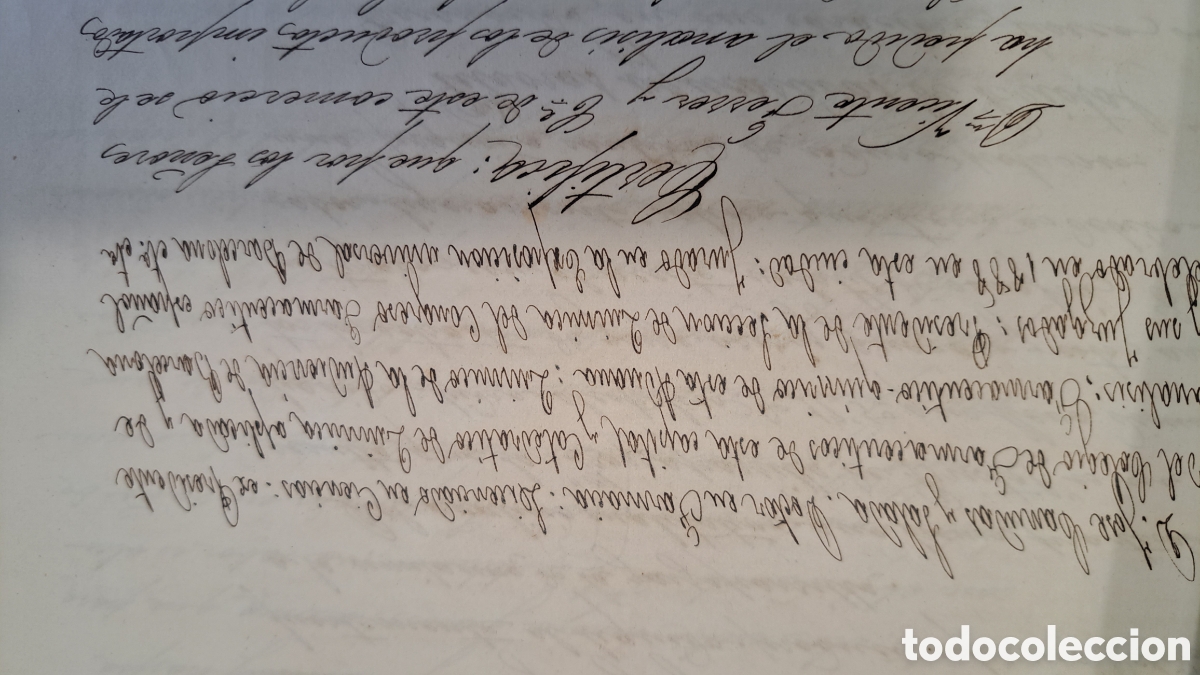 D. José Canudas y Salada. Doctor en Farmacia: Licenciado en Ciencias: ex Presidente
del Colegio de Farmacéuticos de esta capital, y Catedrático de Química aplicada y de
análisis: Farmacéutico-químico de esta Aduana: Químico de la Audiencia de Barcelona
y sus Juzgados: Presidente de la Sección de Química del Congreso Farmacéutico español
celebrado en 1888 en esta ciudad: Jurado en la Exposición universal de Barcelona etc. etc.
Certifica: que por los Señores
Dn. Vicente Ferrer y Ca. de este comercio se le
ha pedido el análisis de los productos importados
todocoleccion